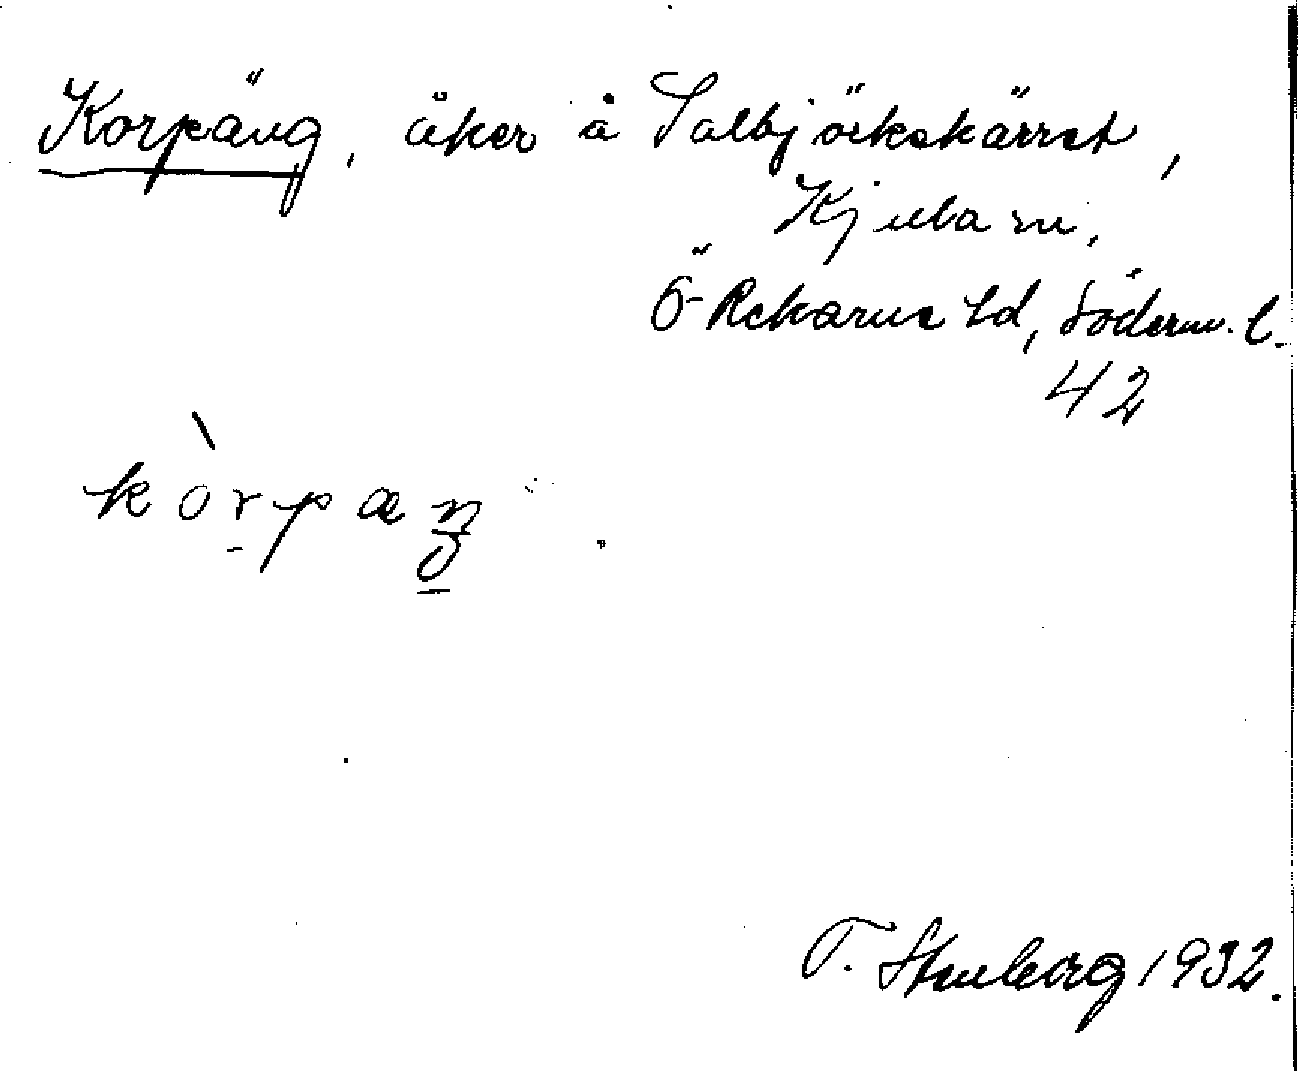 Korpäng, åker å Salbjörkskärret,
Kjula sn,
Ö-Rekarne hd, Söderm. l.
42
kòrpæŋ
T. Stenborg 1932.